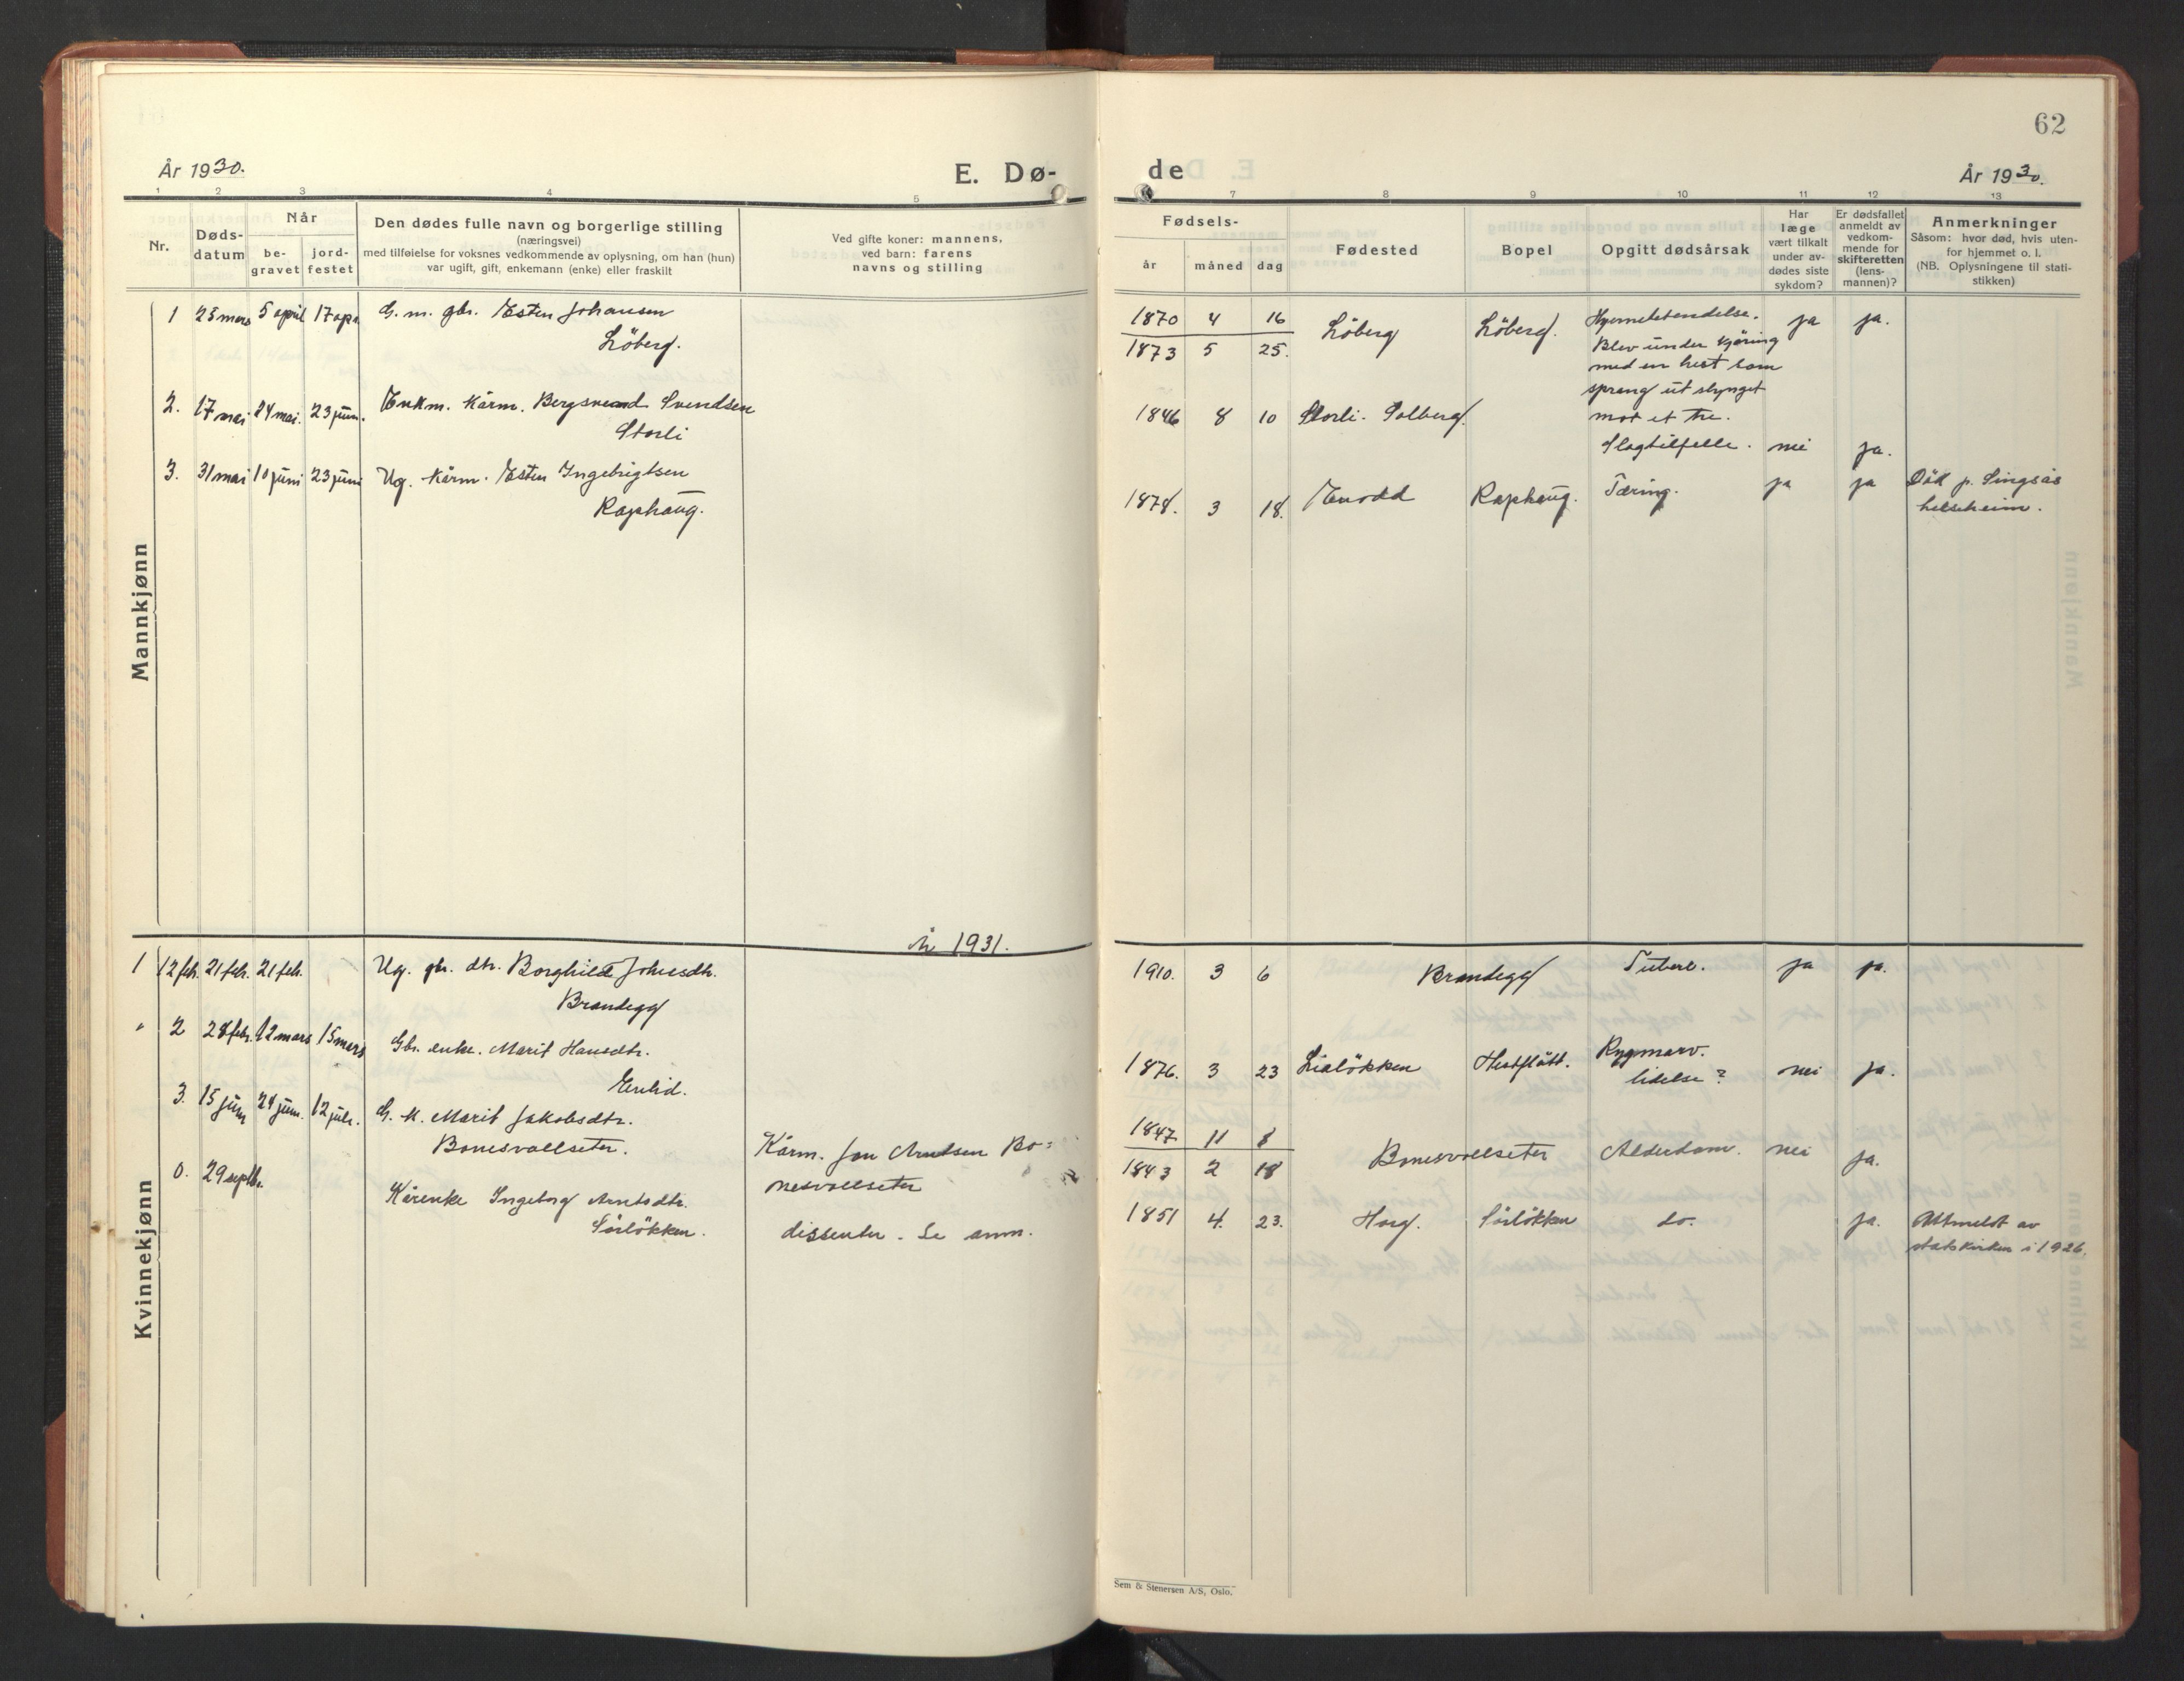 62
År 1930.
E. Dø-
de
År 1930.
1 2 3 4 5
7 8 9 10 11 12 13
Nr.
Døds-
datum
Når
be-
gravet
jord-
festet
Den dødes fulle navn og borgerlige stilling
(næringsvei)
med tilføielse for voksnes vedkommende av oplysning, om han (hun)
var ugift, gift, enkemann (enke) eller fraskilt
Ved gifte koner: mannens,
ved barn: farens
navns og stilling
Fødsels-
år måned dag
Fødested
Bopel
Opgitt dødsårsak
Har
læge
vært tilkalt
under av-
dødes siste
sykdom?
Er dødsfallet
anmeldt av
vedkom-
mende for
skifteretten
(lens-
mannen)?
Anmerkninger
Såsom: hvor død, hvis uten-
for hjemmet o. l.
(NB. Oplysningene til stati-
stikken)
Mannkjønn
1 23 mars 5 april 17 apr. G. m. gbr. Esten Johansen
Löberg.
1870 4 16
1873 5 25.
Löberg Löberg.
Hjernebetendelse. ja ja.
Blev under kjøring
med en hest som
sprang ut slynget
mot et tre.
2. 17 mai 24 mai. 23 juni. Enkm. kårm. Bergsvend Svendsen
Storli
1846 8 10 Storli. Solberg.
Slagtilfelle. nei ja.
3. 31 mai 10 juni 23 juni Ug. kårm. Esten Ingebrigtsen
Raphaug.
1878. 3 18. Enodd Raphaug. Tæring. ja ja Död p. Singsås
helseheim.
År 1931.
Kvinnekjønn
1 12 feb. 21 feb. 21 feb. Ug. gbr. dtr. Borghild Johnsdtr.
Brandegg
1910. 3 6 Brandegg Tuberk. ja ja.
2 28 febr. 12 mars 15 mars Gbr. enke. Marit Hansdtr.
Enlid.
1876. 3 23 Lialökken Hestflått. Rygmarv.
lidelse? nei ja.
3. 15 juni 24 juni. 12 juli. G. K. Marit Jakobsdtr.
Bonesvollseter.
Kårm. Jon Arntsen Bo=
nesvollseter
1847 11 8
1843 2 18
Bonesvollseter Alderdom. nei ja.
0. 29 septbr. Kårenke Ingeborg Arntsdtr.
Sörlökken.
dissenter. Se anm.
1851 4. 23. Horg. Sörlökken do. ja. Utmeldt av
statskirken i 1926.
Sem & Stenersen A/S, Oslo.